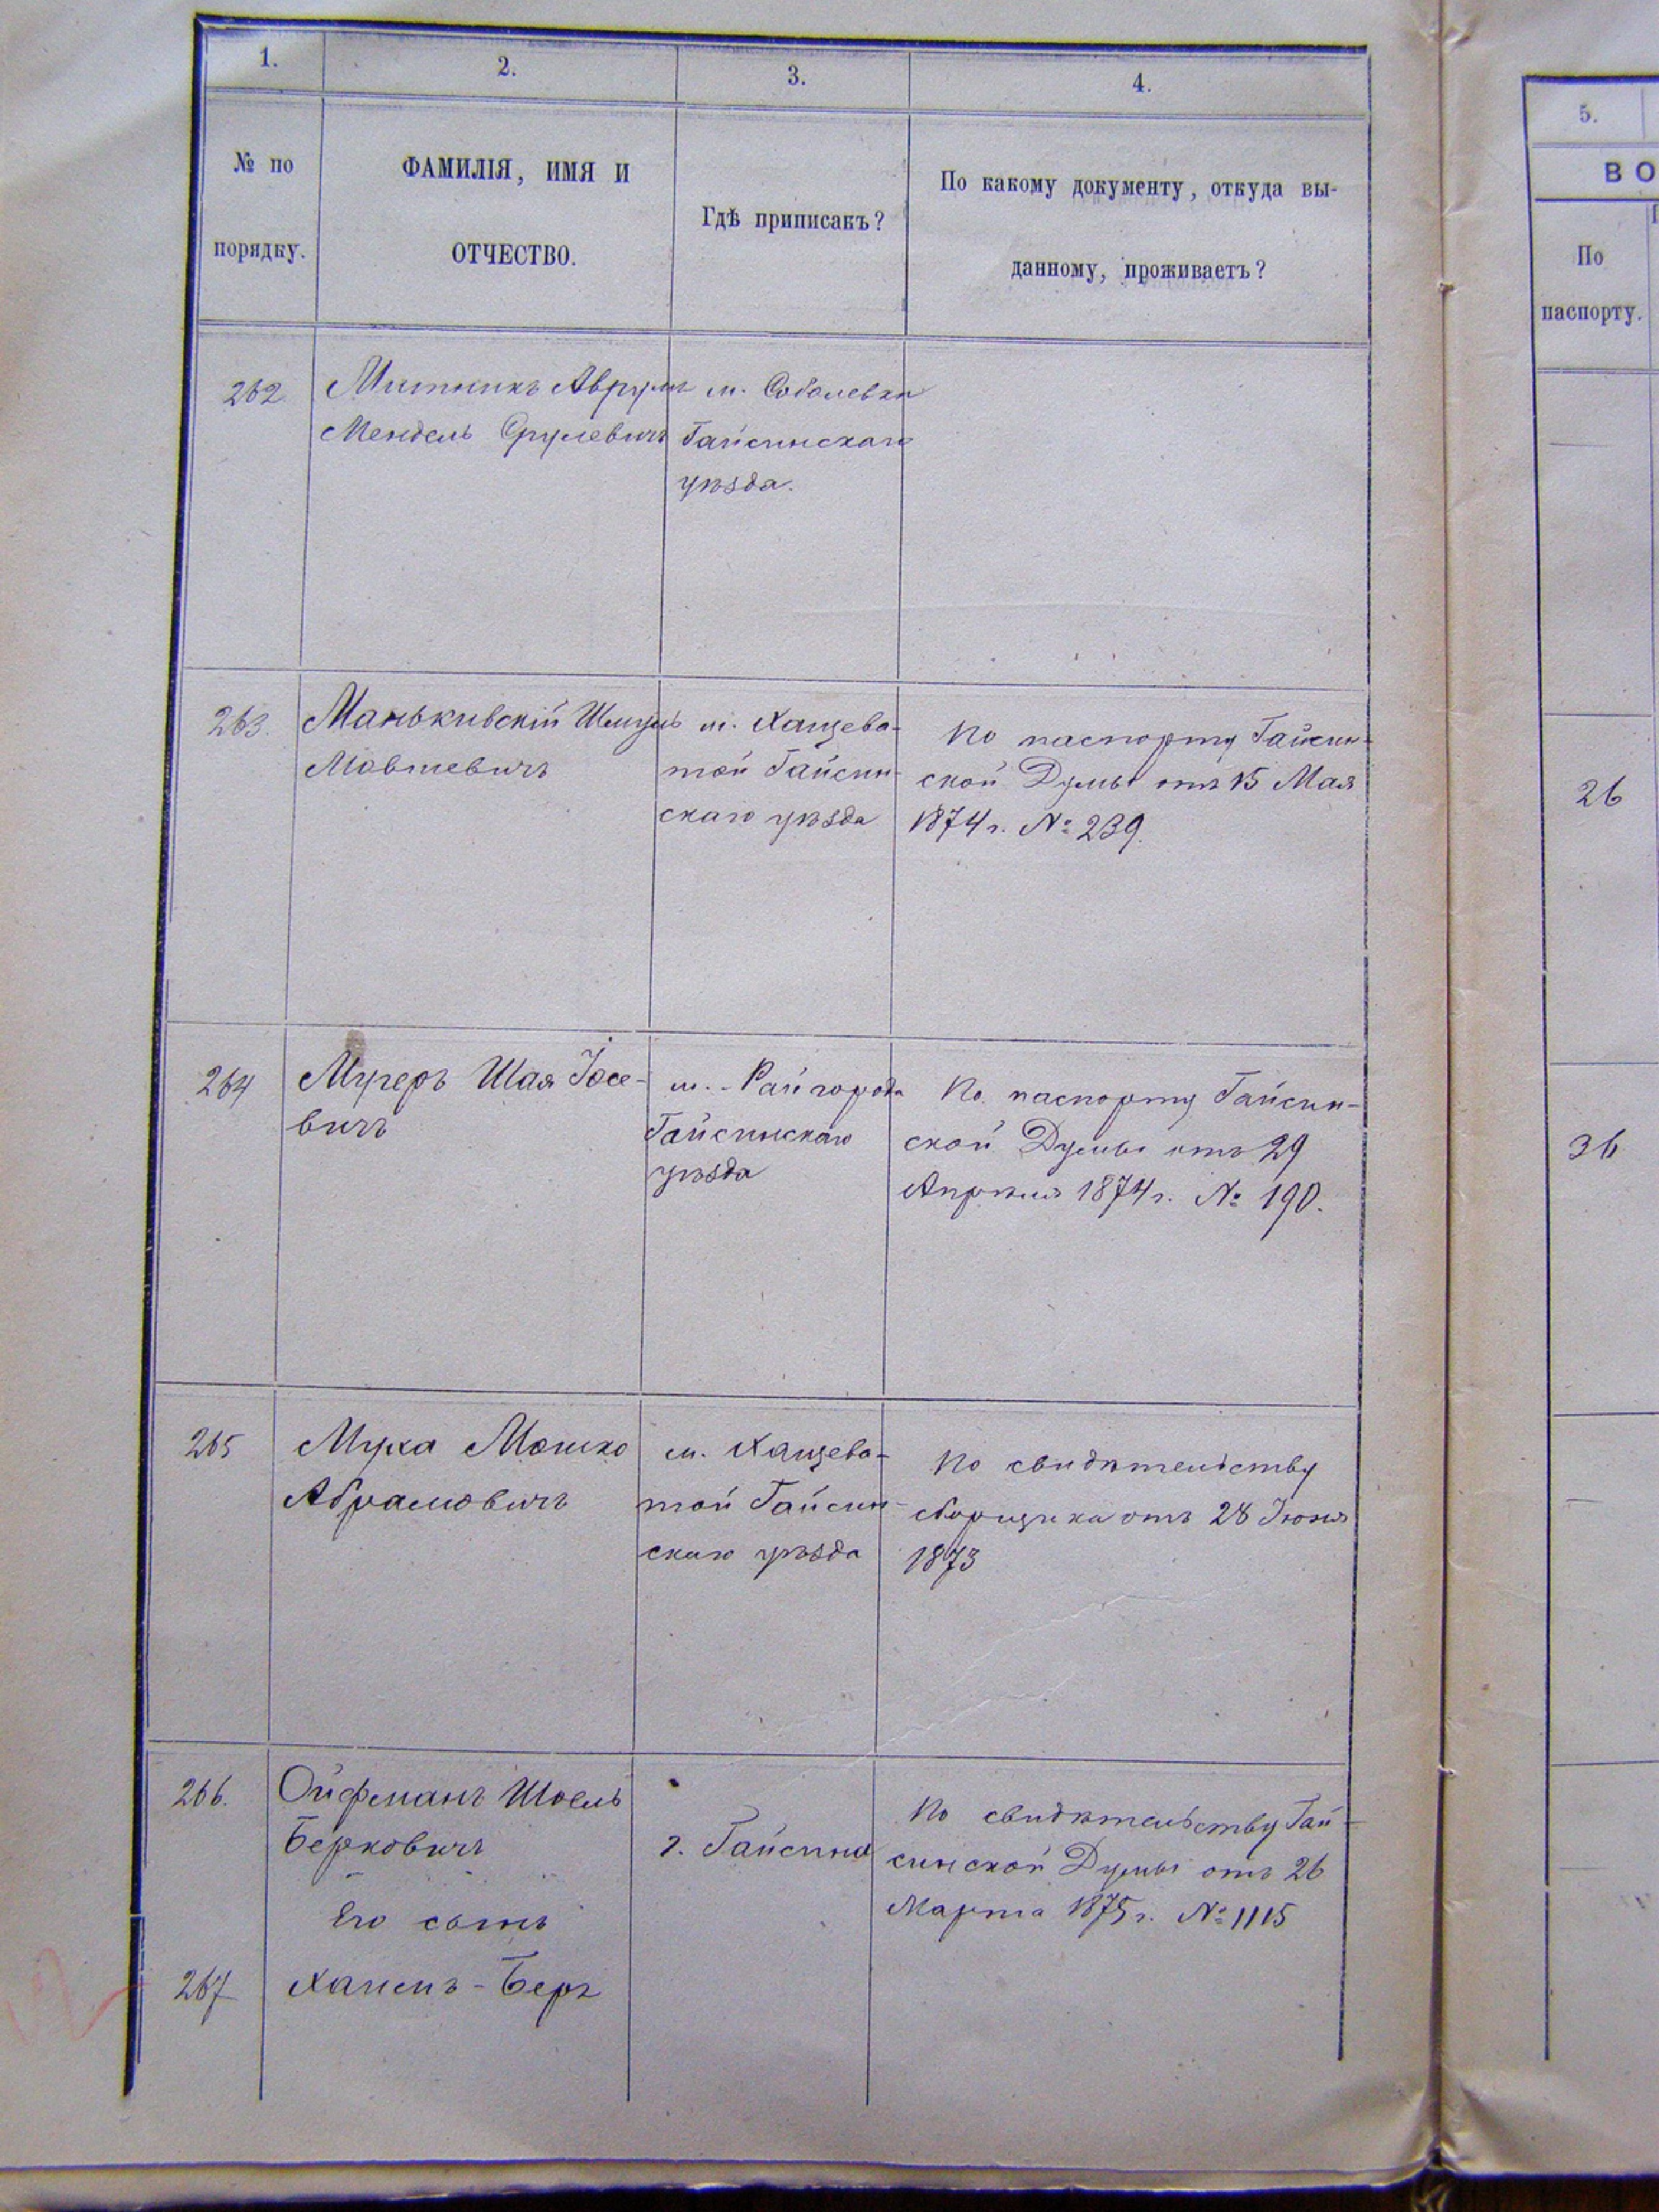 1.
2.
3.
4.
5.
№ по
порядку.
ФАМИЛІЯ, ИМЯ И
ОТЧЕСТВО.
Гдѣ приписакъ?
По какому документу, откуда вы-
данному, проживаетъ?
ВО
По
паспорту.
262.
Митникъ Аврумъ
Мендель Срулевичъ
м. Соболевки
Гайсинскаго
уѣзда.
263.
Манькивскій Шмуль
Мовшевичъ
м. Хащева-
той Гайсин-
скаго уѣзда
По паспорту Гайсин-
ской Думы отъ 15 Мая
1874 г. № 239.
26
264
Мучеръ Шая Іосе-
вичъ
м. Райгорода
Гайсинскаго
уѣзда
По паспорту Гайсин-
ской Думы отъ 29
Апрѣля 1874 г. № 190.
36
265
Муха Мошко
Абрамовичъ
м. Хащева-
той Гайсин-
скаго уѣзда
По свидѣтельству
сборщика отъ 28 Іюня
1873
266.
Ойфманъ Шоель
Берковичъ
г. Гайсина
По свидѣтельству Гай-
синской Думы отъ 26
Марта 1875 г. № 1115
Его сынъ
267
Хаимъ-Беръ